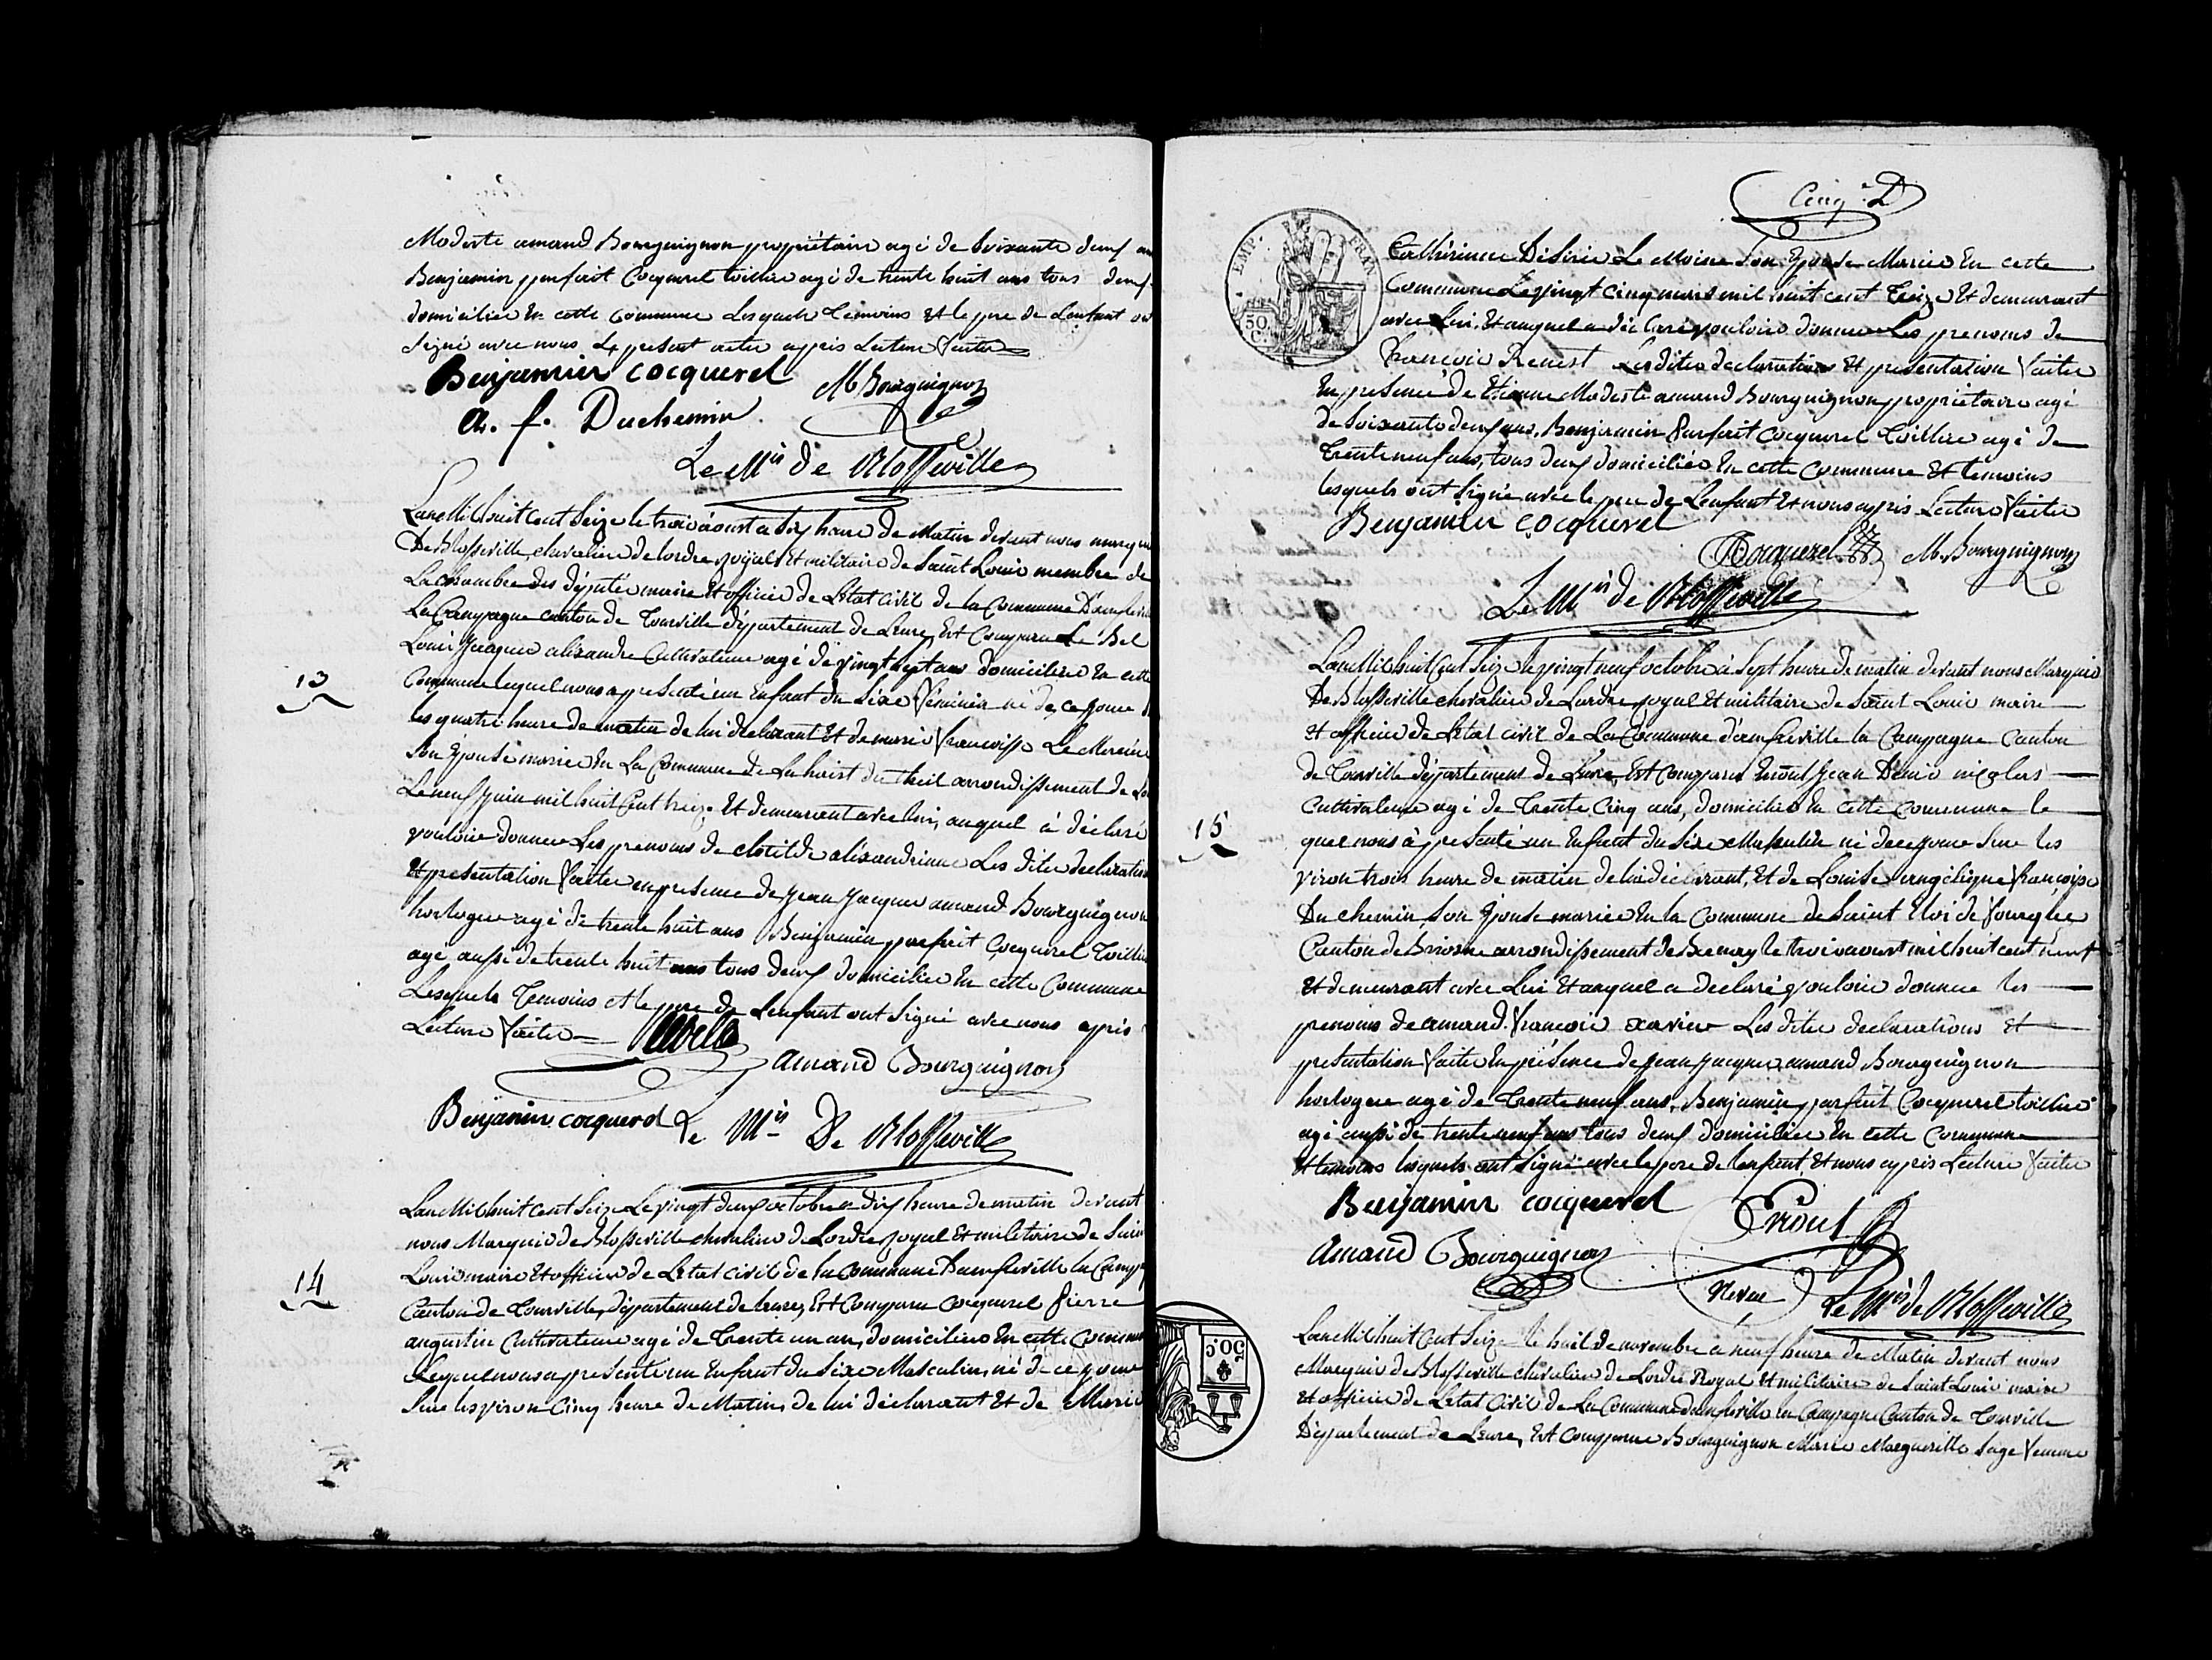 Modeste amand Bourguignon propriétaire agé de Soixante deux an
Benjamin parfait Cocquerel toillier agé de trente huit ans tous deux
domiciliée En cette Commune Lesquels Témoins Et le pere de Lenfant on
Signé avec nous Le present acte apris Lecture faitte
Benjamin cocquerel M Bourguignon
a. f. Duchemin
Le Mis de Blosseville
Lan Mil huit Cent Seize le trois aoust a dix heure de Matin devant nous marquis
De Blosseville, chevalier de lordre royal Et militaire de Saint Louis membre de
La chambre des députée maire Et officier de Letat civil de la Commune D'amfreville
La Campagne canton de tourville département de Leure, Est Comparu Le Bel
Louis Jacques alixandre Cultivateur agé de vingt sept ans domicilier En cette
13
Commune lequel nous a presenté un Enfant du Sixe féminin né de ce jour
les quatre heure de matin de lui déclarant Et de marie françoisse Le Mercier
Son Epouse mariée En La Commune de La haist du theil arrondissement de
Le neuf Juin mil huit Cent treize Et demeurant avec lui, auquel a déclaré
vouloir donner Les prenoms de clotilde alixandrinne Les dittes declaration
Et presentation faitte en presence de Jean Jacques amand Bourguignon
horloger agé de trente huit ans Benjamin parfait Cocquerel Toillier
agé aussi de trente huit ans tous deux domicilier En cette Commune
Lesquels Temoins et le pere de Lenfant ont Signé avec nous apris
Lecture faitte
Amand Bourguignon
Benjamin cocquerel Le Mis De Blosseville
Lan Mil huit Cent Seize Le vingt deux octobre a dix heure de matin devant
nous Marquis de Blosseville chevalier de Lordre royal Et militaire de Sain
Louis maire Et officier de Letat civil de la Commune D'amfreville la Camp
14
Canton de Tourville, département de Leure, Est Comparu Cocquerel Pierre
augustin Cultivateur agé de Trente un an, domiciliers En cette Commune
Lequel nous a presenté un Enfant du Sixe Masculin, né de ce jour
Sure les viron Cinq heure de Matin, de lui déclarant Et de Marie
Catherinne Désirée Le Moine Son Epouse Mariée En cette
Commune Le vingt cinq mars mil huit cent Treize Et demeurant
avec Lui, Et auquel a déclaré vouloir donner Les prenoms de
François Ernest Les dites declarations Et presentation faitte
En presence de Etienne Modeste amand Bourguignon propriétaire agé
de Soixante deux ans, Benjamin Parfait Cocquerel Toillier agé de
Trente neuf ans, tous deux domiciliée En cette Commune Et témoins
lesquels ont Signé avec le pere de Lenfant Et nous apris Lecture faitte
EMP. FRAN
50 C
Benjamin cocquerel
Cocquerel M. Bourguignon
Le Mis de Blosseville
Lan Mil huit Cent Seize le vingt neuf octobre à Sept heure de matin devant nous Marquis
De Blosseville chevalier de Lordre royal Et militaire de Saint Louis maire
Et officier de Letat civil de La Commune d'amfreville la Campagne Canton
de Tourville département de Leure, Est Comparu Enoult Jean Denis nicolas
Cultivateur agé de Trente Cinq ans, domicilier En cette Commune le
15
quel nous à presenté un Enfant du Sixe Masculin né de ce jour Sure les
viron trois heure de matin de lui déclarant, Et de Louise angélique françoise
Du chemin Son Epouse mariée En la Commune de Saint Eloi de fourques
Canton de Brionne arrondissement de Bernay le trois aoust mil huit cent neuf
Et demeurant avec Lui Et auquel a declaré vouloir donner les
prenoms de amand françois xavier Les dittes declarations et
presentation faitte En présence de Jean Jacques amand Bourguignon
horloger agé de Trente neuf ans, Benjamin parfait Cocquerel toillier
agé aussi de trente neuf ans tous deux domicilier En cette Commune
Et temoins lesquels ont Signé avec le pere de lenfant, Et nous apris Lecture faitte
Benjamin cocquerel
Amand Bourguignon
Le Mis de Blosseville
50 C
Lan Mil huit Cent Seize le huit de novembre a neuf heure de Matin devant nous
Marquis de Blosseville chevalier de Lordre Royal Et militaire de Saint Louis maire
Et officier de Letat Civil de La Commune d'amfreville la Campagne Canton de Tourville
Département de Leure, Est Comparue Bourguignon Marie Margueritte Sage femme